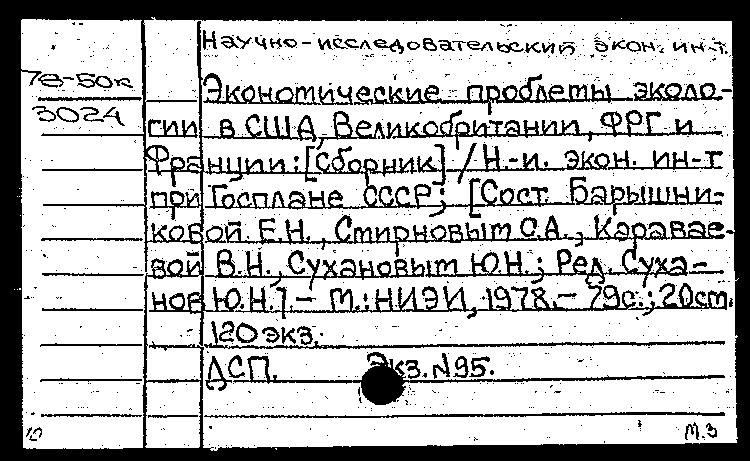 Научно-исследовательский экон. ин-т.
78-50к
Экономические проблемы эколо-
3024
гии в США, Великобритании, ФРГ и
Франции: [Сборник] / Н.-и. экон. ин-т
при Госплане СССР; [Сост. Барышни-
ковой Е.Н., Смирновым С.А., Каравае-
вой В.Н., Сухановым Ю.Н.; Ред. Суха-
нов Ю.Н.] - М.: НИЭИ, 1978.- 79с.; 20см.
120 экз.
ДСП. Экз. N95.
10 М.З